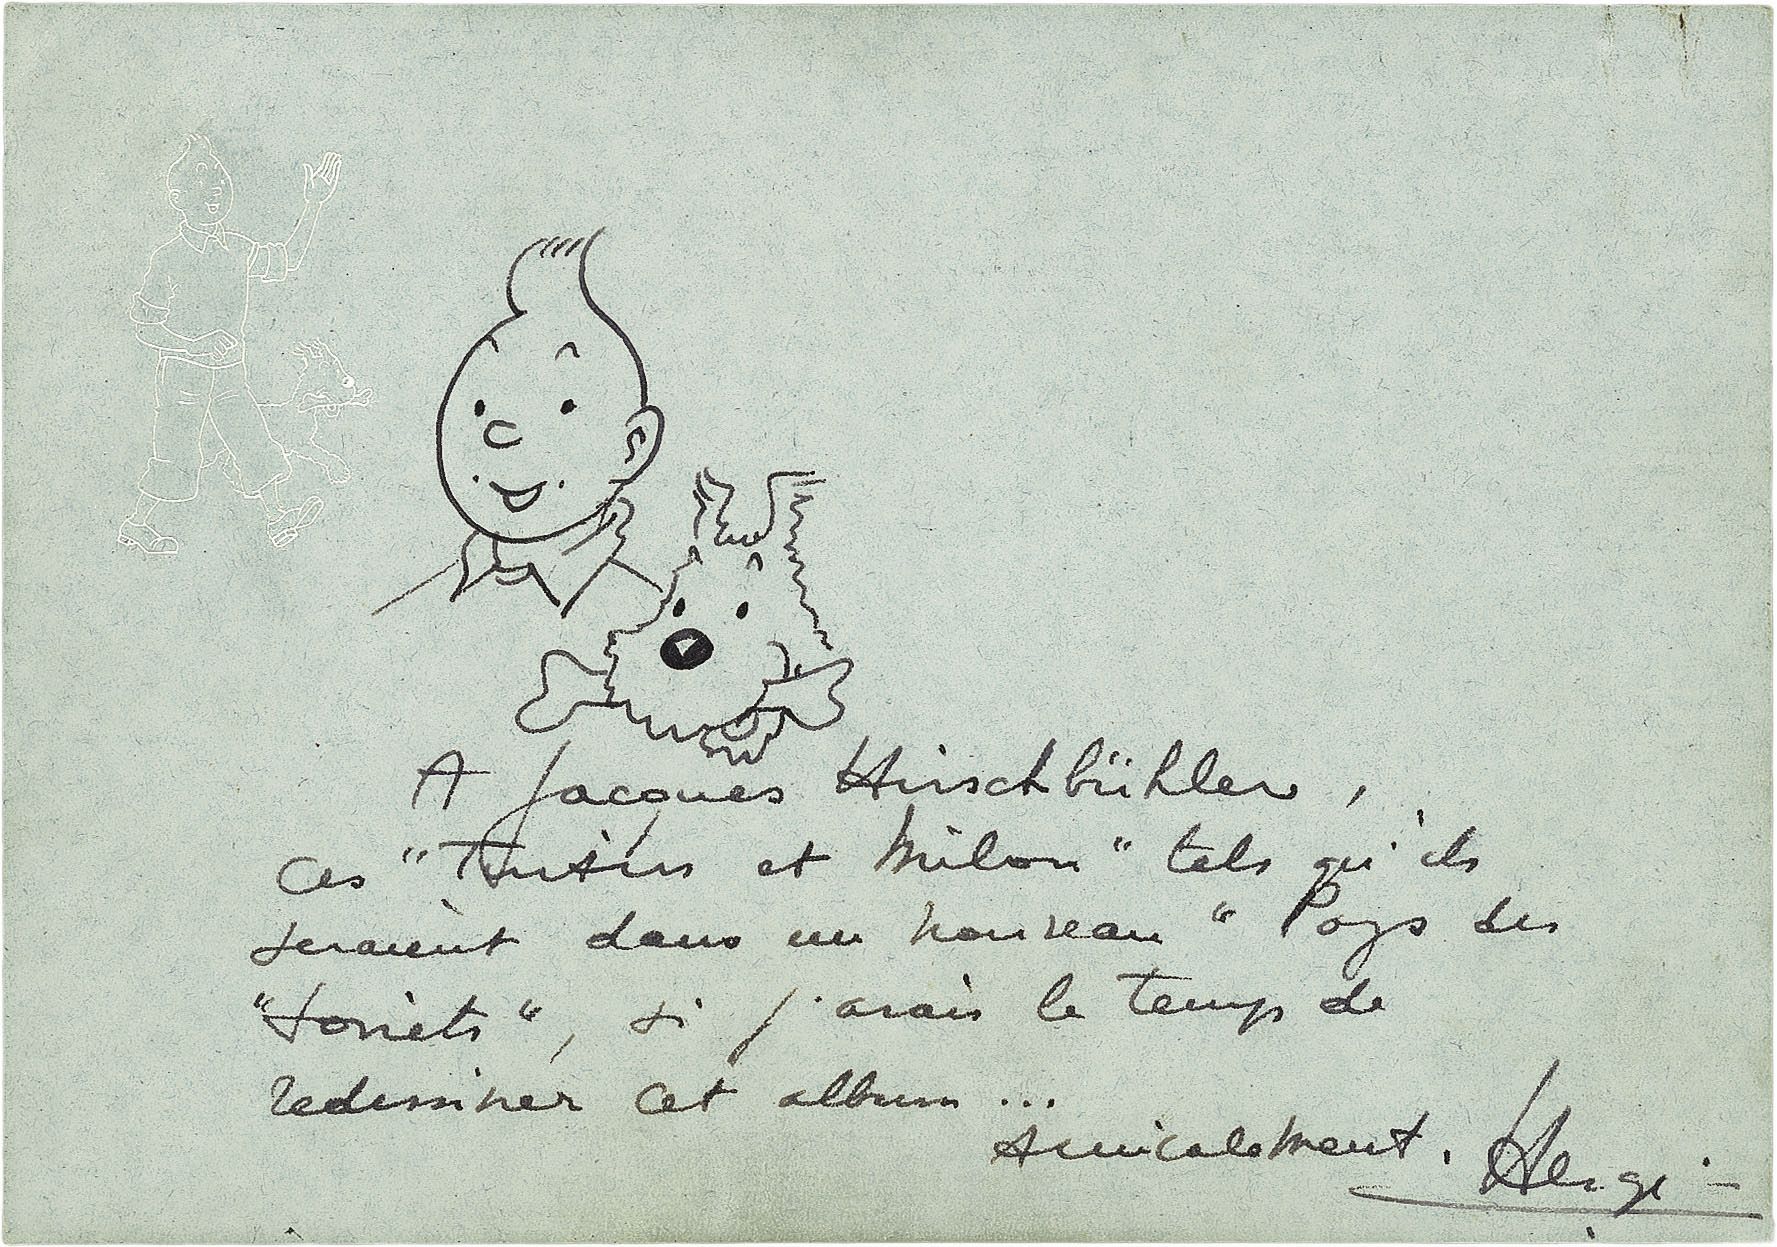 A Jacques Hirschbühler,
ces "Tintin et Milou" tels qu'ils
seraient dans un nouveau "Pays des
"Soviets", si j'avais le temps de
redessiner cet album...
Amicalement.
Hergé